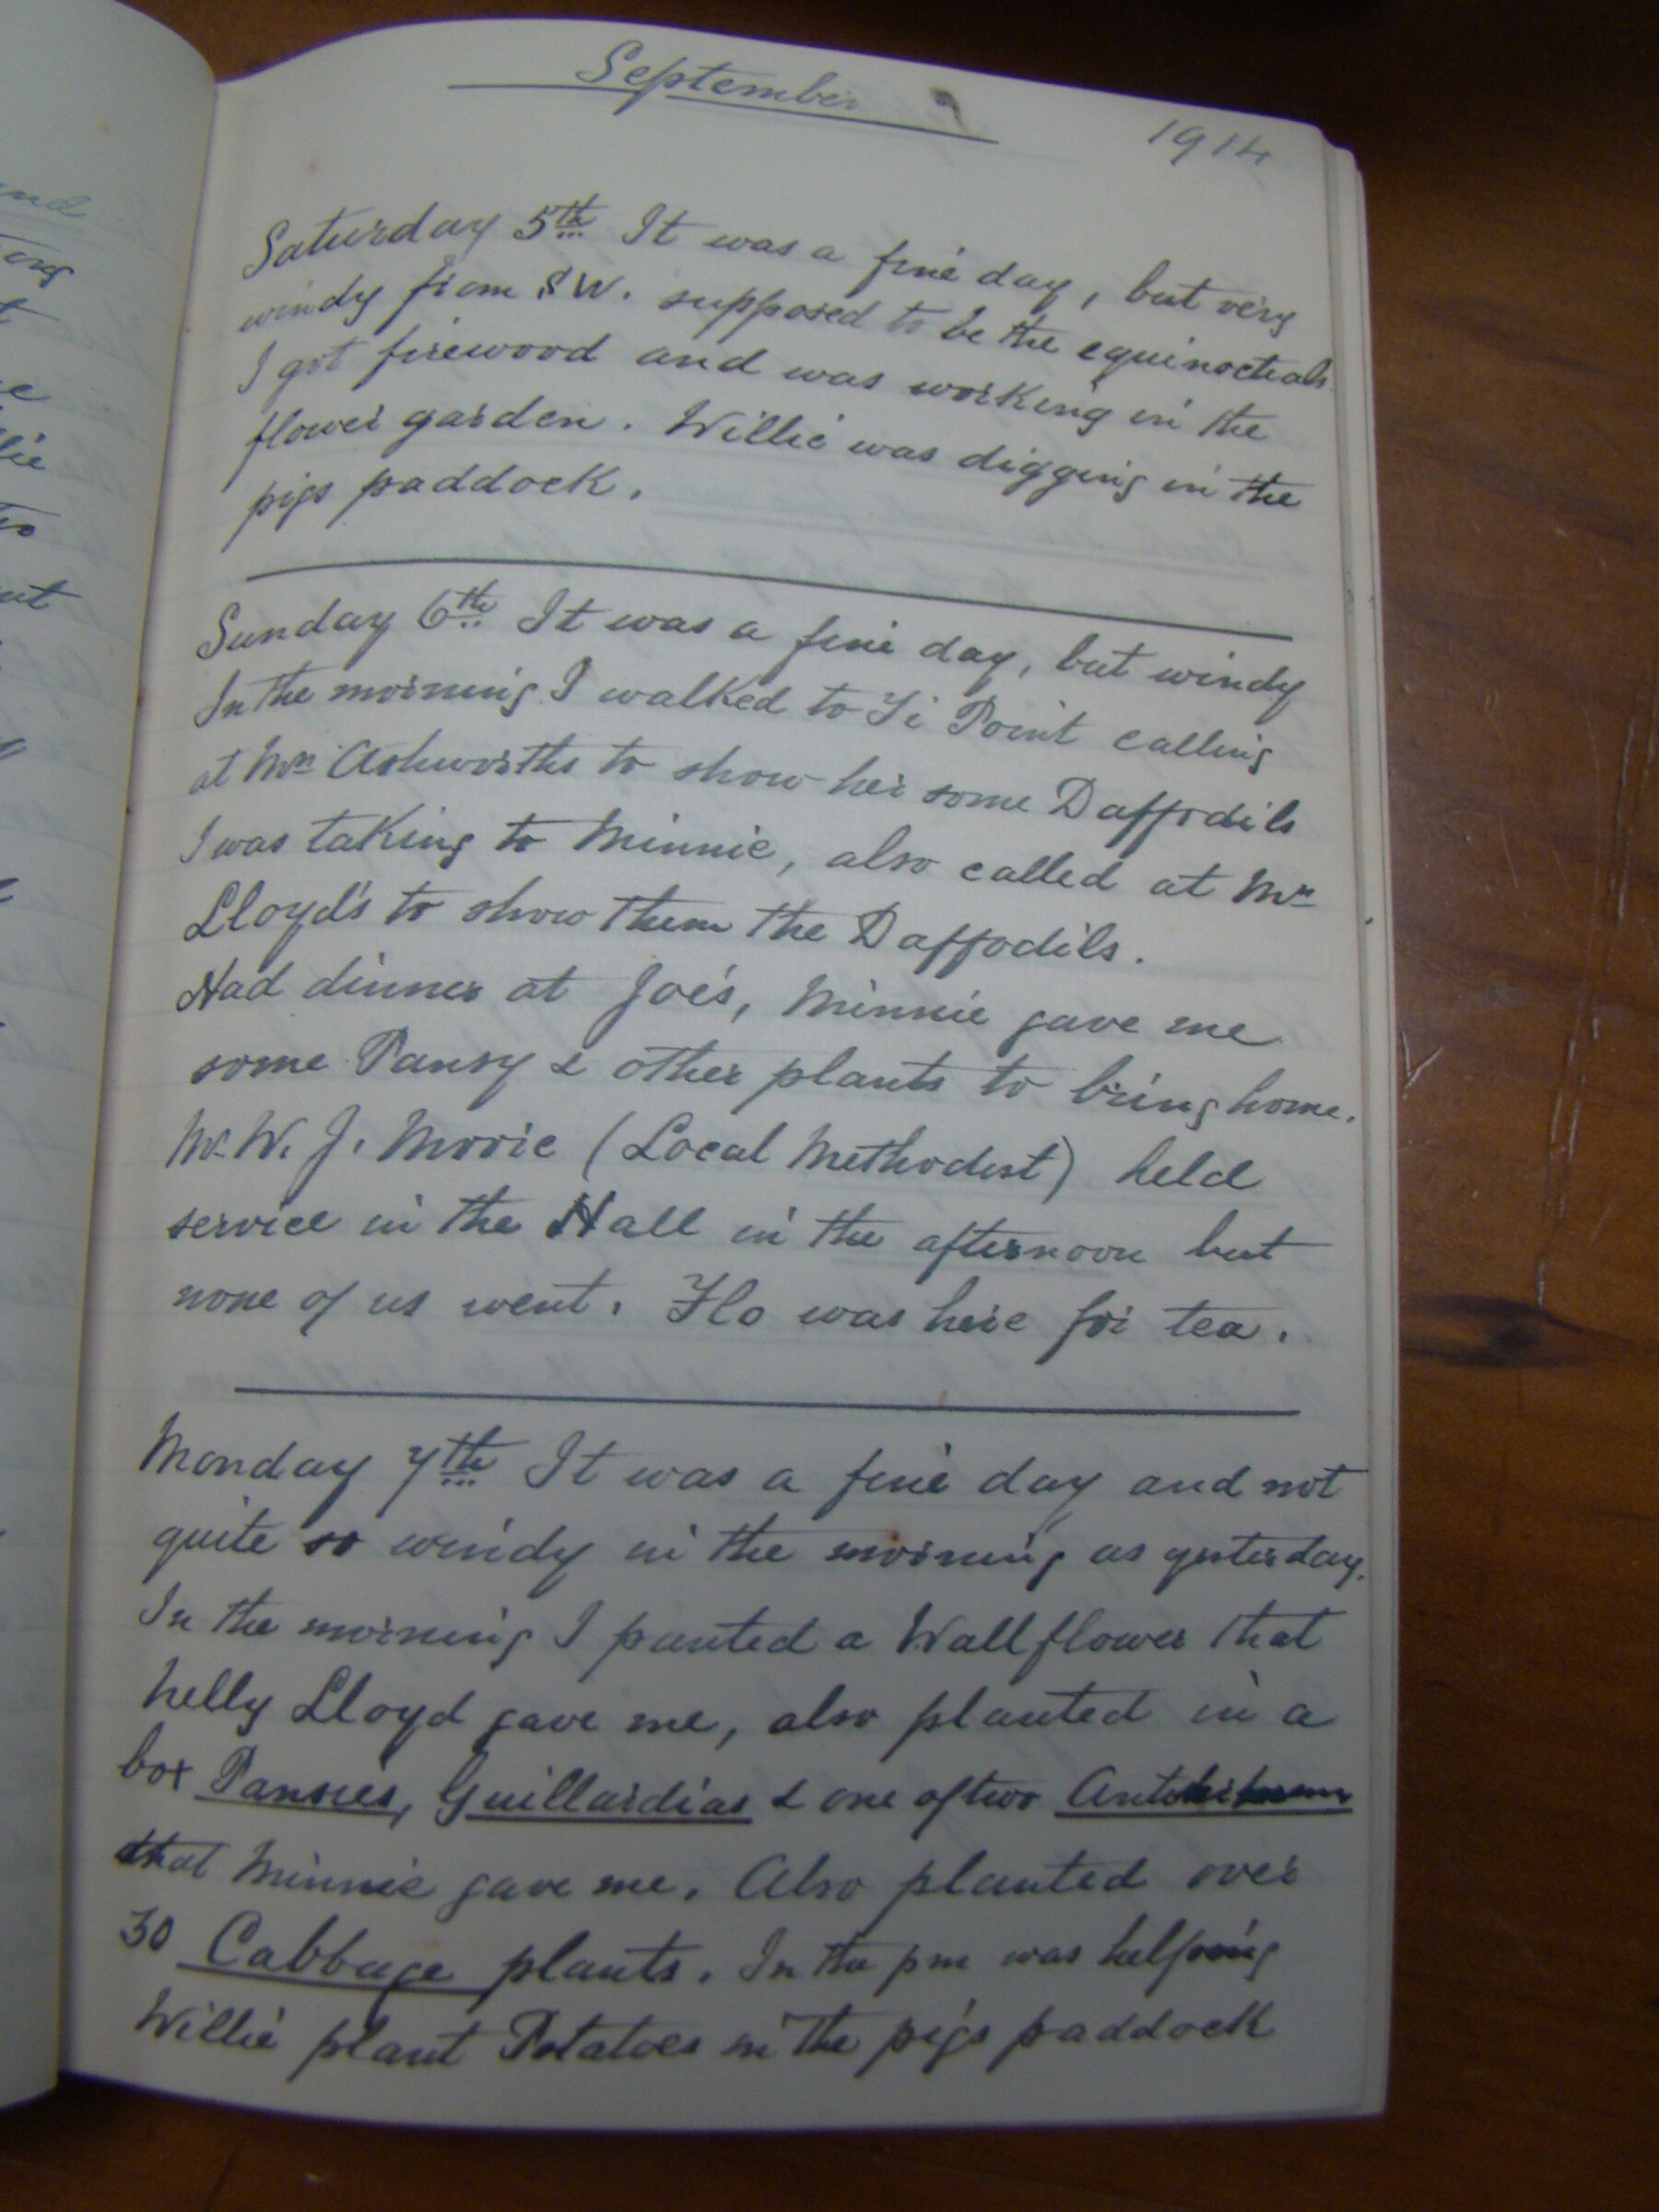 September
1914
Saturday 5th It was a fine day, but very
windy from S W. supposed to be the equinoctials.
I got firewood and was working in the
flower garden. Willie was digging in the
pigs paddock.
Sunday 6th It was a fine day, but windy
In the morning I walked to Ti Point calling
at Mrs Ashworths to show her some Daffodils
I was taking to Minnie, also called at Mrs
Lloyd's to show them the Daffodils.
Had dinner at Joe's, Minnie gave me
some Pansy & other plants to bring home.
Mr W. J. Morrie (Local Methodist) held
service in the Hall in the afternoon but
none of us went. Flo was here for tea.
Monday 7th It was a fine day and not
quite so windy in the morning as yesterday.
In the morning I panted a Wallflower that
Nelly Lloyd gave me, also planted in a
box Pansies, Guillardias & one of two
that Minnie gave me. Also planted over
30 Cabbage plants. In the pm was helping
Willie plant Potatoes in the pigs paddock